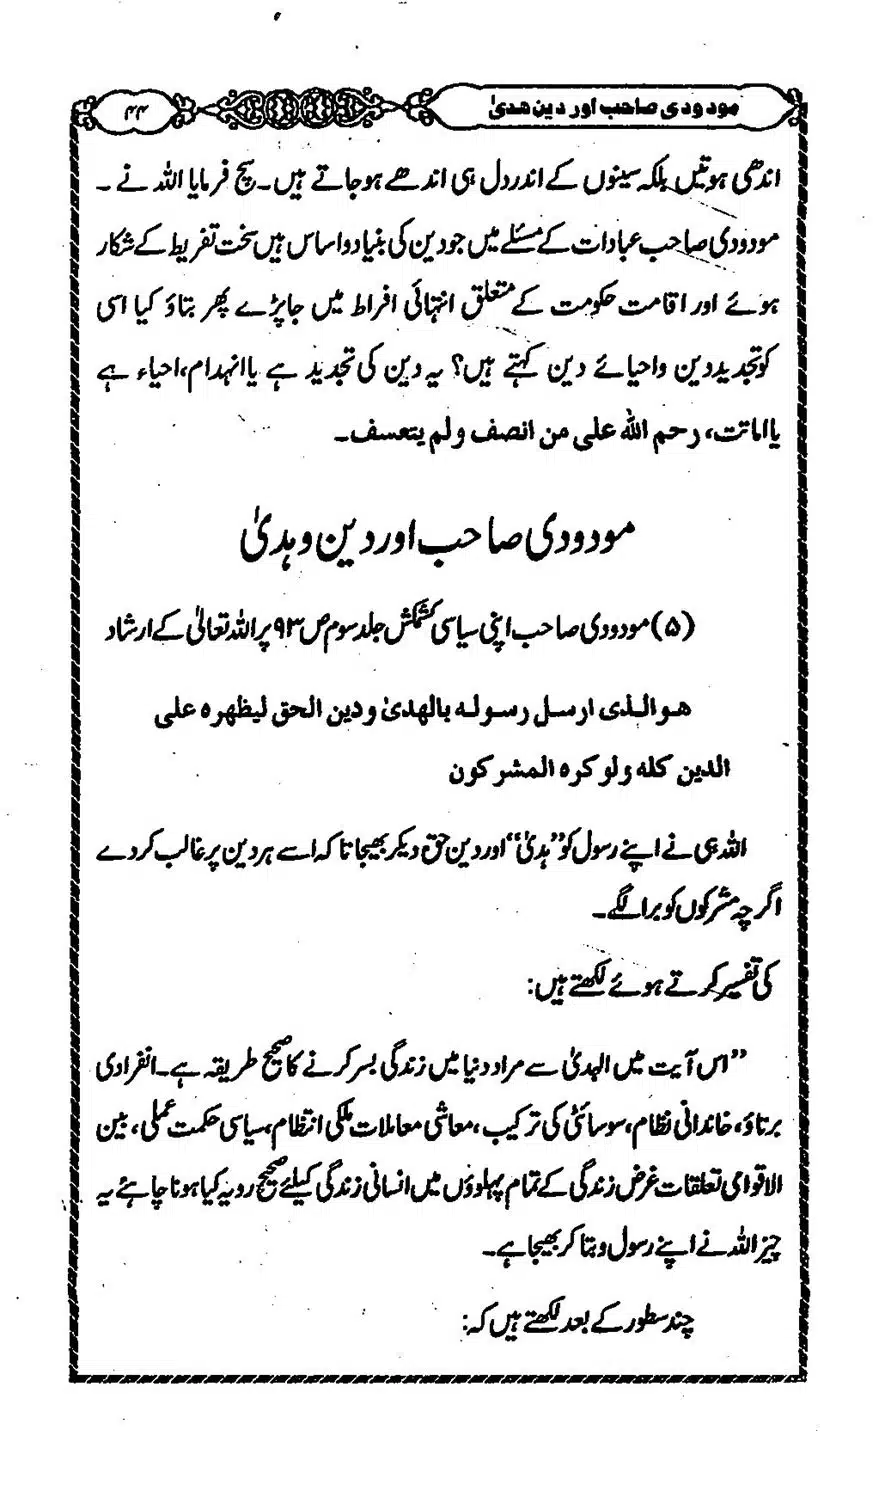 مودودی صاحب اور دین ھدیٰ
۴۴
اندھی ہوتیں بلکہ سینوں کے اندر دل ہی اندھے ہو جاتے ہیں۔ سچ فرمایا اللہ نے ۔
مودودی صاحب عبادات کے مسئلے میں جو دین کی بنیاد و اساس ہیں سخت تفریط کے شکار
ہوئے اور اقامت حکومت کے متعلق انتہائی افراط میں جا پڑے پھر بتاؤ کیا اسی
کو تجدید دین و احیائے دین کہتے ہیں؟ یہ دین کی تجدید ہے یا انہدام، احیاء ہے
یا اماتت، رحم اللہ علی من انصف ولم یتعسف۔
مودودی صاحب اور دین و ہدیٰ
(۵) مودودی صاحب اپنی سیاسی کشمکش جلد سوم ص ۹۳ پر اللہ تعالیٰ کے ارشاد
ھو الذی ارسل رسولہ بالھدیٰ و دین الحق لیظھرہ علی
الدین کلہ ولو کرہ المشرکون
اللہ ہی نے اپنے رسول کو ”ہدیٰ“ اور دین حق دیکر بھیجا تاکہ اسے ہر دین پر غالب کردے
اگرچہ مشرکوں کو برا لگے۔
کی تفسیر کرتے ہوئے لکھتے ہیں:
”اس آیت میں الہدیٰ سے مراد دنیا میں زندگی بسر کرنے کا صحیح طریقہ ہے۔ انفرادی
برتاؤ، خاندانی نظام، سوسائٹی کی ترکیب، معاشی معاملات ملکی انتظام، سیاسی حکمت عملی، بین
الاقوامی تعلقات غرض زندگی کے تمام پہلوؤں میں انسانی زندگی کیلئے صحیح رویہ کیا ہونا چاہئے یہ
چیز اللہ نے اپنے رسول و بتا کر بھیجا ہے۔
چند سطور کے بعد لکھتے ہیں کہ: